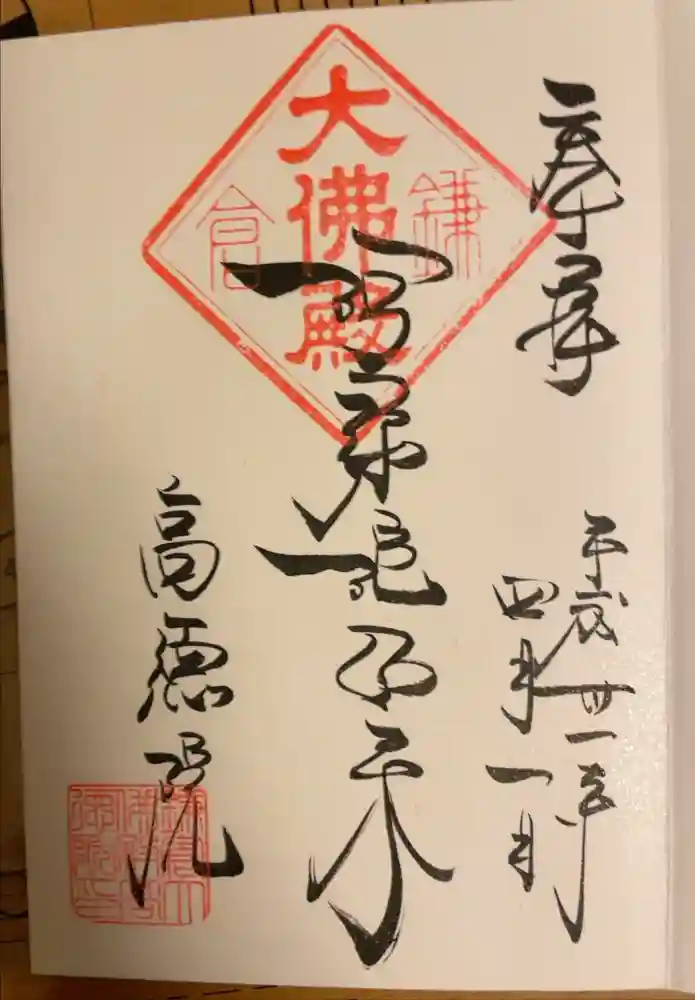 奉拝
平成卅一年
四月一日
鎌倉
大佛殿
阿弥陀如来
高徳院